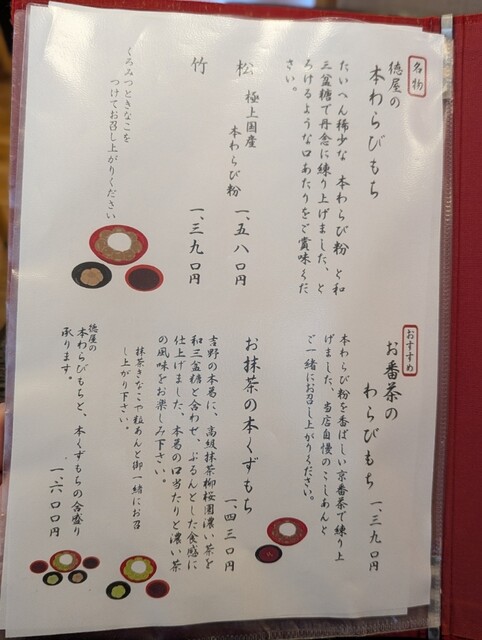 名物
徳屋の
本わらびもち
たいへん稀少な 本わらび粉 と和
三盆糖で丹念に練り上げました、と
ろけるような口あたりをご賞味くだ
さい。
松 極上国産
本わらび粉 一、五八〇円
竹 一、三九〇円
くろみつときなこを
つけてお召し上がりください
おすすめ
お番茶の
わらびもち 一、三九〇円
本わらび粉を香ばしい京番茶で練り上
げました、当店自慢のこしあんと
ご一緒にお召し上がりください。
お抹茶の本くずもち
一、四三〇円
吉野の本葛に、高級抹茶柳桜園濃い茶を
和三盆糖と合わせ、ぷるんとした食感に
仕上げました、本葛の口当たりと濃い茶
の風味をお楽しみ下さい。
抹茶きなこや粒あんと御一緒にお召
し上がり下さい。
徳屋の
本わらびもちと、本くずもちの合盛り
承ります。
一、六〇〇円